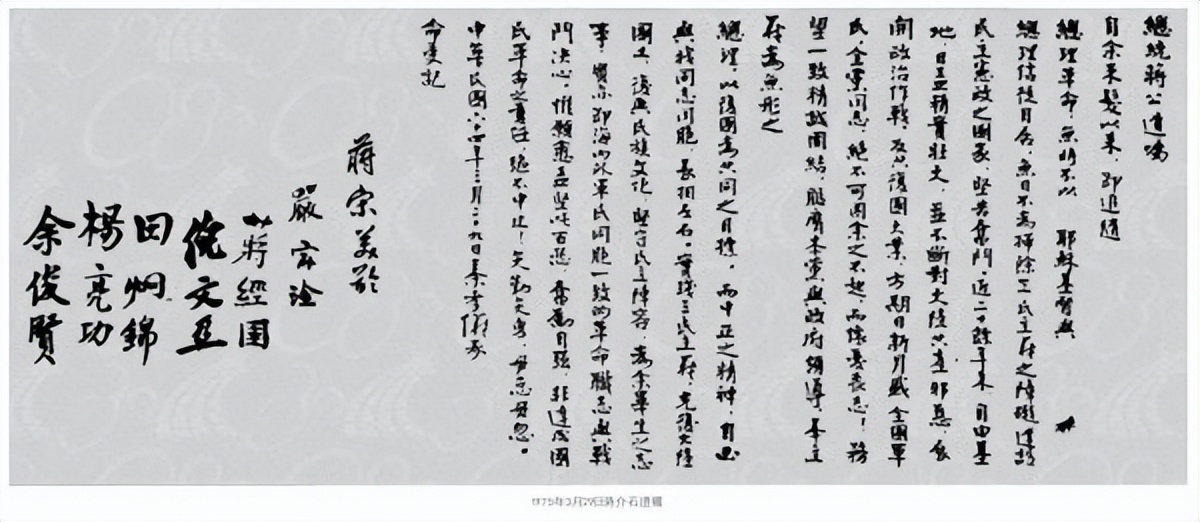 總統蔣公遺囑
自余束髮以來,即追隨
總理革命,無時不以 耶穌基督與
總理信徒自居,無日不為掃除三民主義之障礙,建設
民主憲政之國家,堅苦奮鬥。近二十餘年來,自由基
地,日益精實壯大,並不斷對大陸共產邪惡,展
開政治作戰,反共復國大業,方期日新月盛,全國軍
民、全黨同志,絕不可因余之不起,而懷憂喪志!務
望一致精誠團結,服膺本黨與政府領導,奉主
義為無形之
總理,以復國為共同之目標。而中正之精神,自必
與我同志、同胞,長相左右。實踐三民主義,光復大陸
國土,復興民族文化,堅守民主陣容,為余畢生之志
事,實亦即海內外軍民同胞一致的革命職志與戰
鬥決心。惟願愈益堅此百忍,奮勵自強,非達成國
民革命之責任,絕不中止!矢勤矢勇,毋怠毋忽。
中華民國六十四年三月二十九日秦孝儀承
命受記
蔣宋美齡
嚴家淦
蔣經國
倪文亞
田炯錦
楊亮功
余俊賢
1975年3月29日蔣介石遺囑